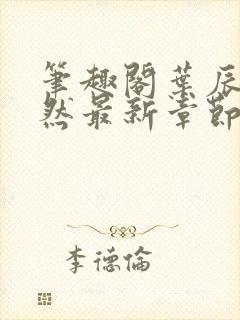 筆趣閣葉辰
然最新章節
李德倫